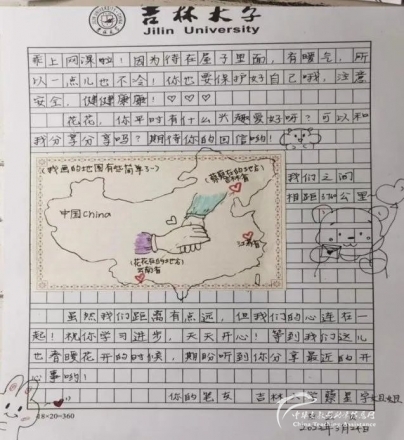 吉林大学
Jilin University
乘上网课啦！因为待在屋子里面，有暖气，所
以一点儿也不冷！你也要保护好自己哦，注意
安全，健健康康！♡♡♡
花花，你平时有什么兴趣爱好呀？可以和
我分享分享吗？期待你的回信哟！
(我画的地图有些简单了~)
我们之间
相距3700公里
吉林省
中国China
江苏省
(花花在的地方)
云南省
虽然我们距离有点远，但我们的心连在一
起！祝你学习进步，天天开心！等到我们这儿
也春暖花开的时候，期盼听到你分享最近的开
心事哟！
你的笔友 吉林
18×20=360
2022年3月24日